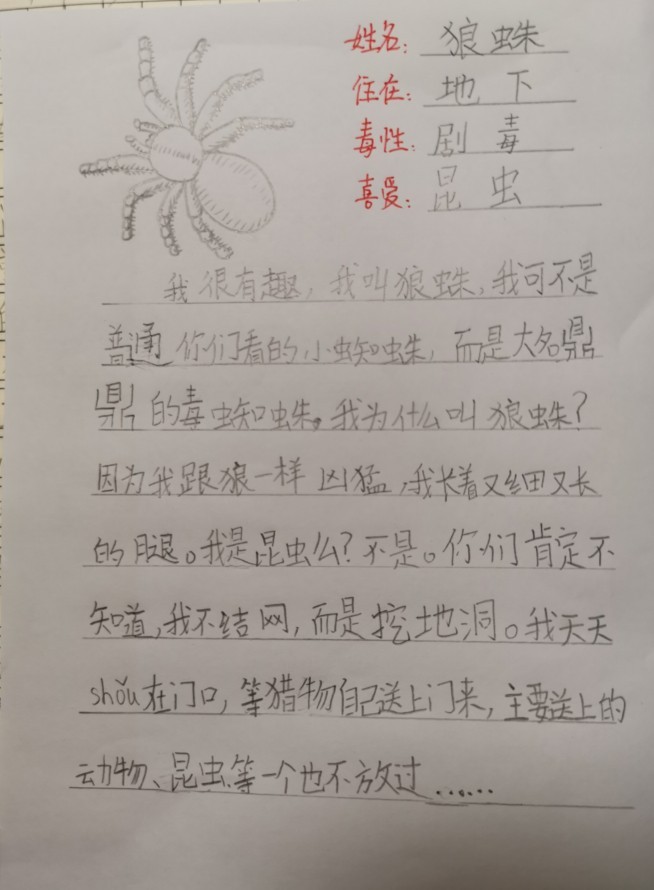 姓名：狼蛛
住在：地下
毒性：剧毒
喜爱：昆虫
我很有趣，我叫狼蛛，我可不是
普通你们看的小蜘蛛，而是大名鼎
鼎的毒蜘蛛。我为什么叫狼蛛？
因为我跟狼一样凶猛，我长着又细又长
的腿。我是昆虫么？不是。你们肯定不
知道，我不结网，而是挖地洞。我天天
shǒu在门口，等猎物自己送上门来，主要送上的
动物、昆虫等一个也不放过……